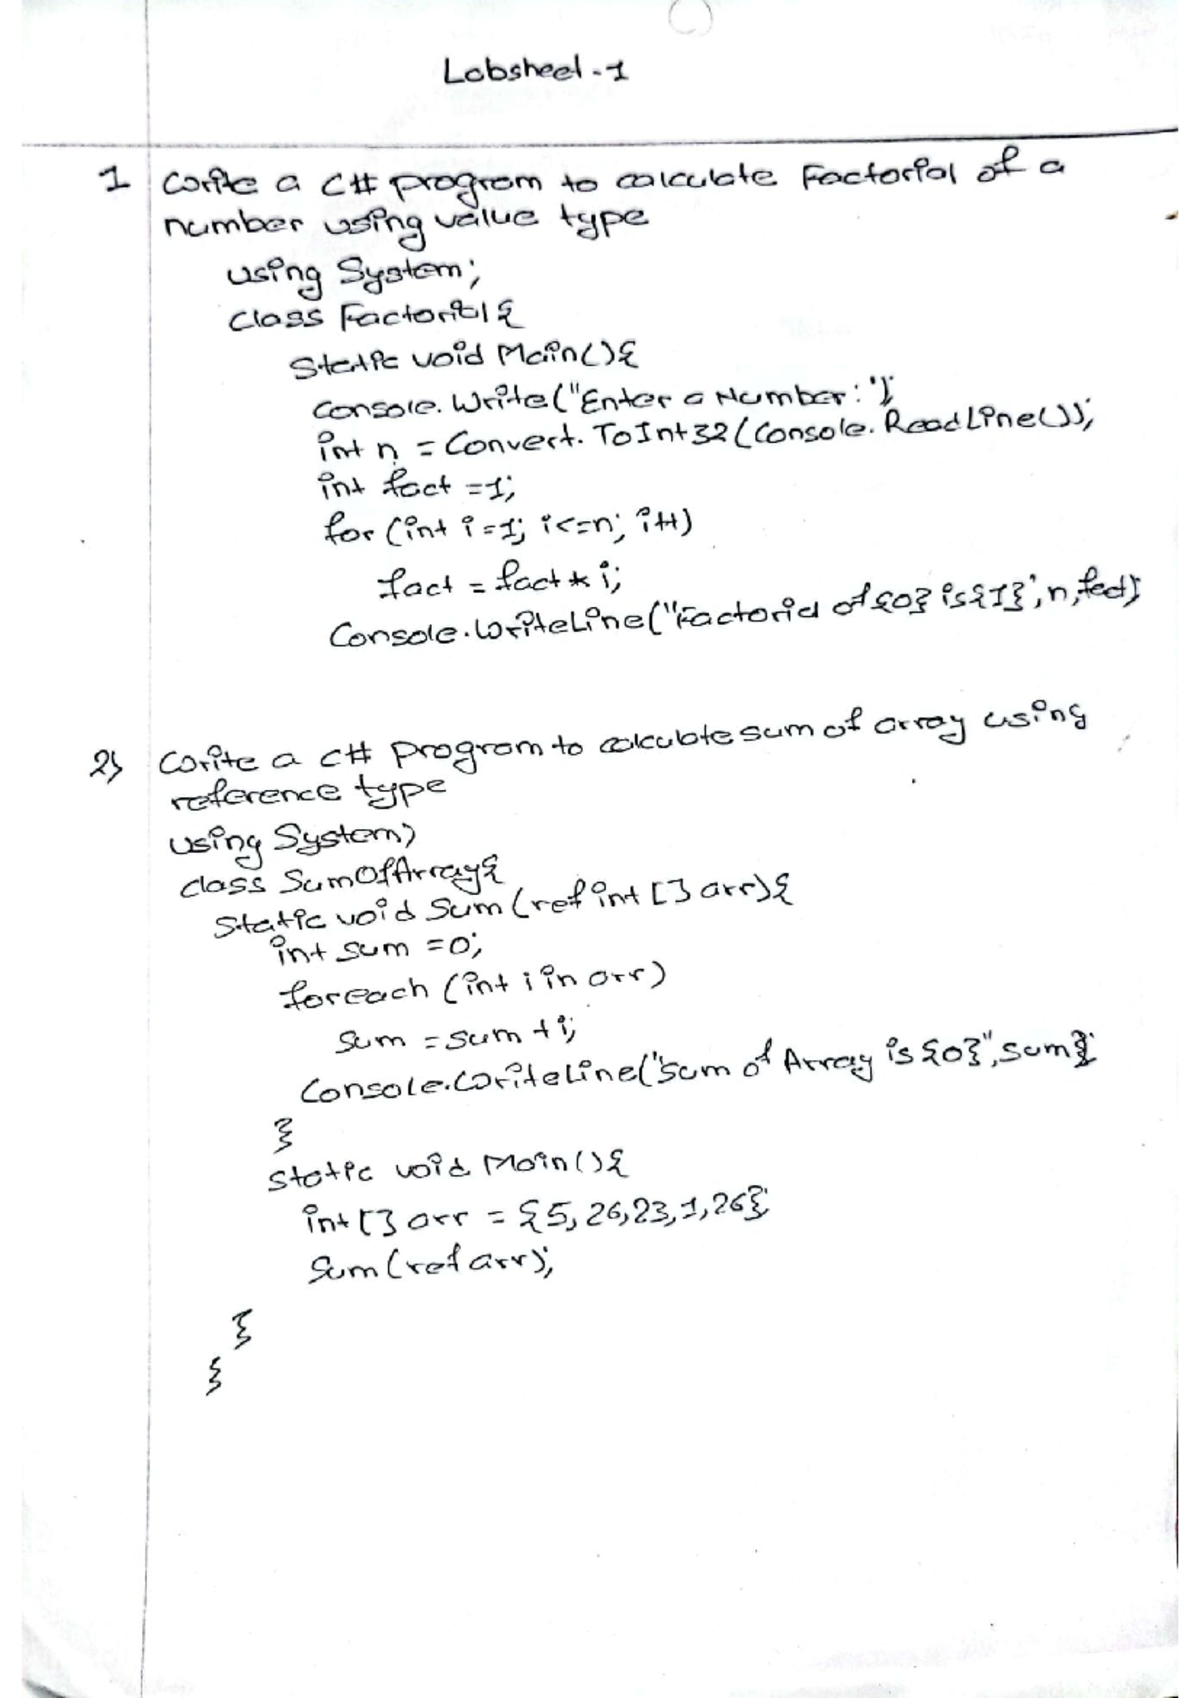 Labsheet-1
1 Write a C# program to calculate Factorial of a
number using value type
using System;
class Factorial{
Static void Main(){
Console.Write("Enter a Number:");
int n = Convert.ToInt32(Console.ReadLine());
int fact =1;
for (int i=1; i<=n; i++)
fact = fact * i;
Console.WriteLine("Factorial of {0} is {1}",n,fact);
2) Write a C# program to calculate sum of array using
reference type
using System;
class SumOfArray{
Static void Sum (ref int [] arr){
int sum =0;
foreach (int i in arr)
sum = sum + i;
Console.WriteLine("Sum of Array is {0}",sum);
}
static void Main(){
int [] arr = {5, 26,23,1,26};
Sum (ref arr);
}
}